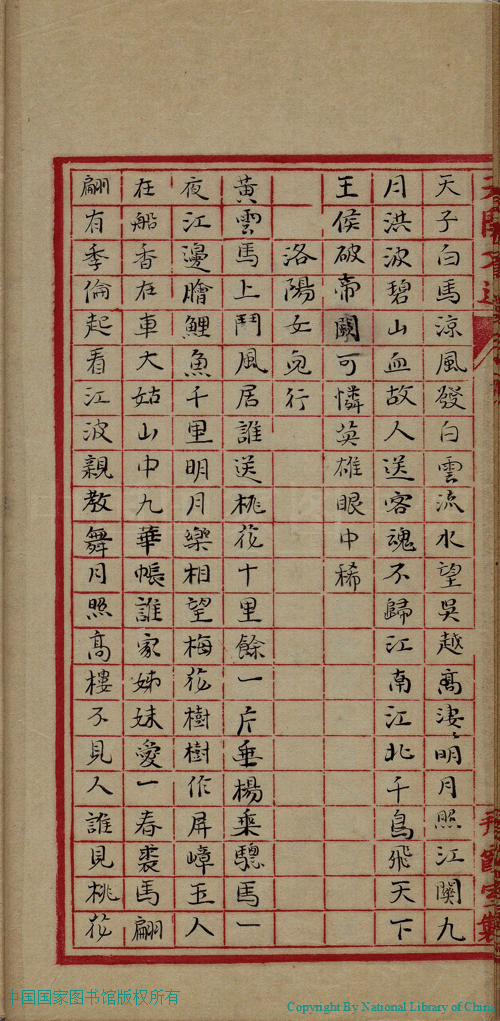 天子白馬涼風發白雲流水望吳越高淒淒明月照江關九
月洪波碧山血故人送客魂不歸江南江北千鳥飛天下
王侯破帝闕可憐英雄眼中稀
洛陽女兒行
黃雲馬上鬥風居誰送桃花十里餘一片垂楊乘驄馬一
夜江邊膾鯉魚千里明月樂相望梅花樹樹作屏嶂玉人
在船香在車大姑山中九華帳誰家姊妹愛一春裘馬翩
翩有季倫起看江波親教舞月照高樓不見人誰見桃花
中国国家图书馆版权所有
Copyright By National Library of China